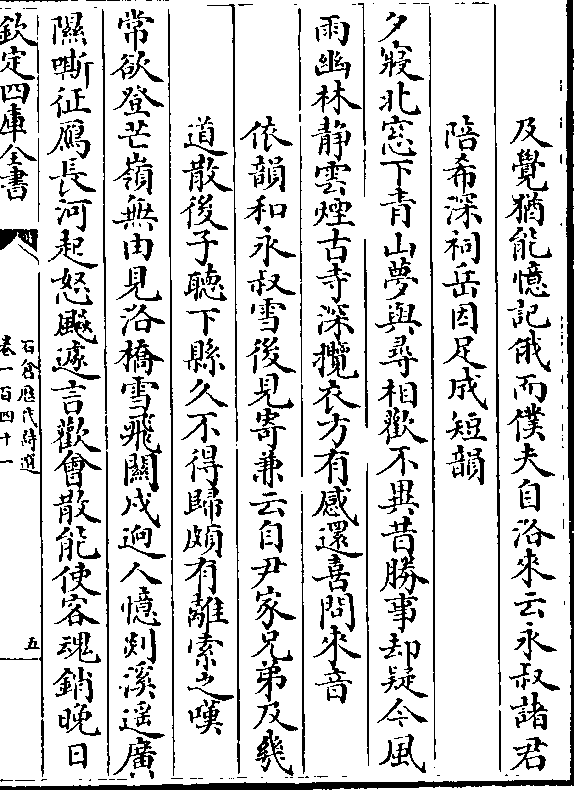 及覺猶能憶記俄而僕夫自洛來云永叔諸君
陪希深祠岳因足成短韻
夕寢北窓下青山夢與尋相歡不異昔勝事却疑今風
雨幽林静雲煙古寺深攬衣方有感還喜問來音
依韻和永叔雪後見寄兼云自尹家兄弟及㡬
道散後子聰下縣久不得歸頗有離索之嘆
常欲登芒嶺無由見洛橋雪飛關戍逈人憶剡溪遥廣
隰嘶征鴈長河起怒飈遽言歡會散能使客魂銷晚日
欽定四庫全書
石倉歷代詩選
卷一百四十一
五